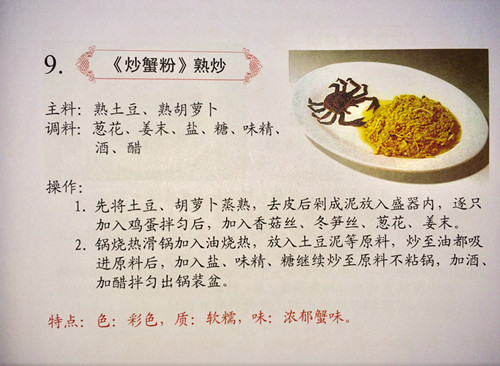 9. 《炒蟹粉》熟炒
主料：熟土豆、熟胡萝卜
调料：葱花、姜末、盐、糖、味精、
酒、醋
操作：
1. 先将土豆、胡萝卜蒸熟，去皮后剁成泥放入盛器内，逐只
加入鸡蛋拌匀后，加入香菇丝、冬笋丝、葱花、姜末。
2. 锅烧热滑锅加入油烧热，放入土豆泥等原料，炒至油都吸
进原料后，加入盐、味精、糖继续炒至原料不粘锅，加酒、
加醋拌匀出锅装盆。
特点：色：彩色，质：软糯，味：浓郁蟹味。